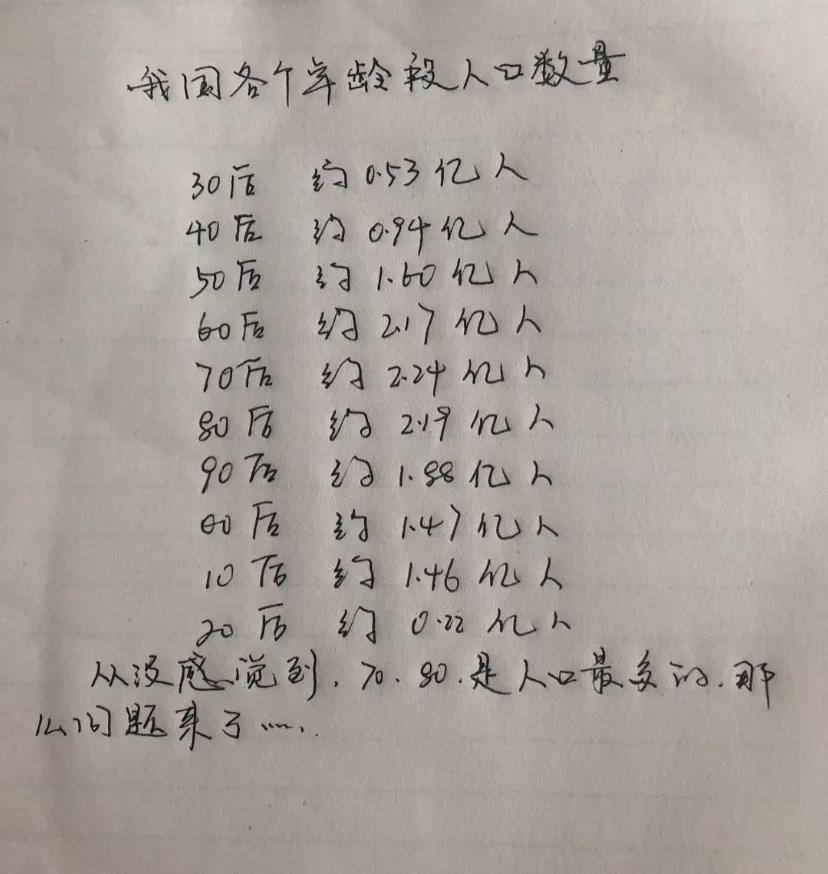 我国各个年龄段人口数量
30后 约0.53亿人
40后 约0.94亿人
50后 约1.60亿人
60后 约2.17亿人
70后 约2.24亿人
80后 约2.19亿人
90后 约1.88亿人
00后 约1.47亿人
10后 约1.46亿人
20后 约0.22亿人
从没感觉到.70.80.是人口最多的.那
么问题来了……